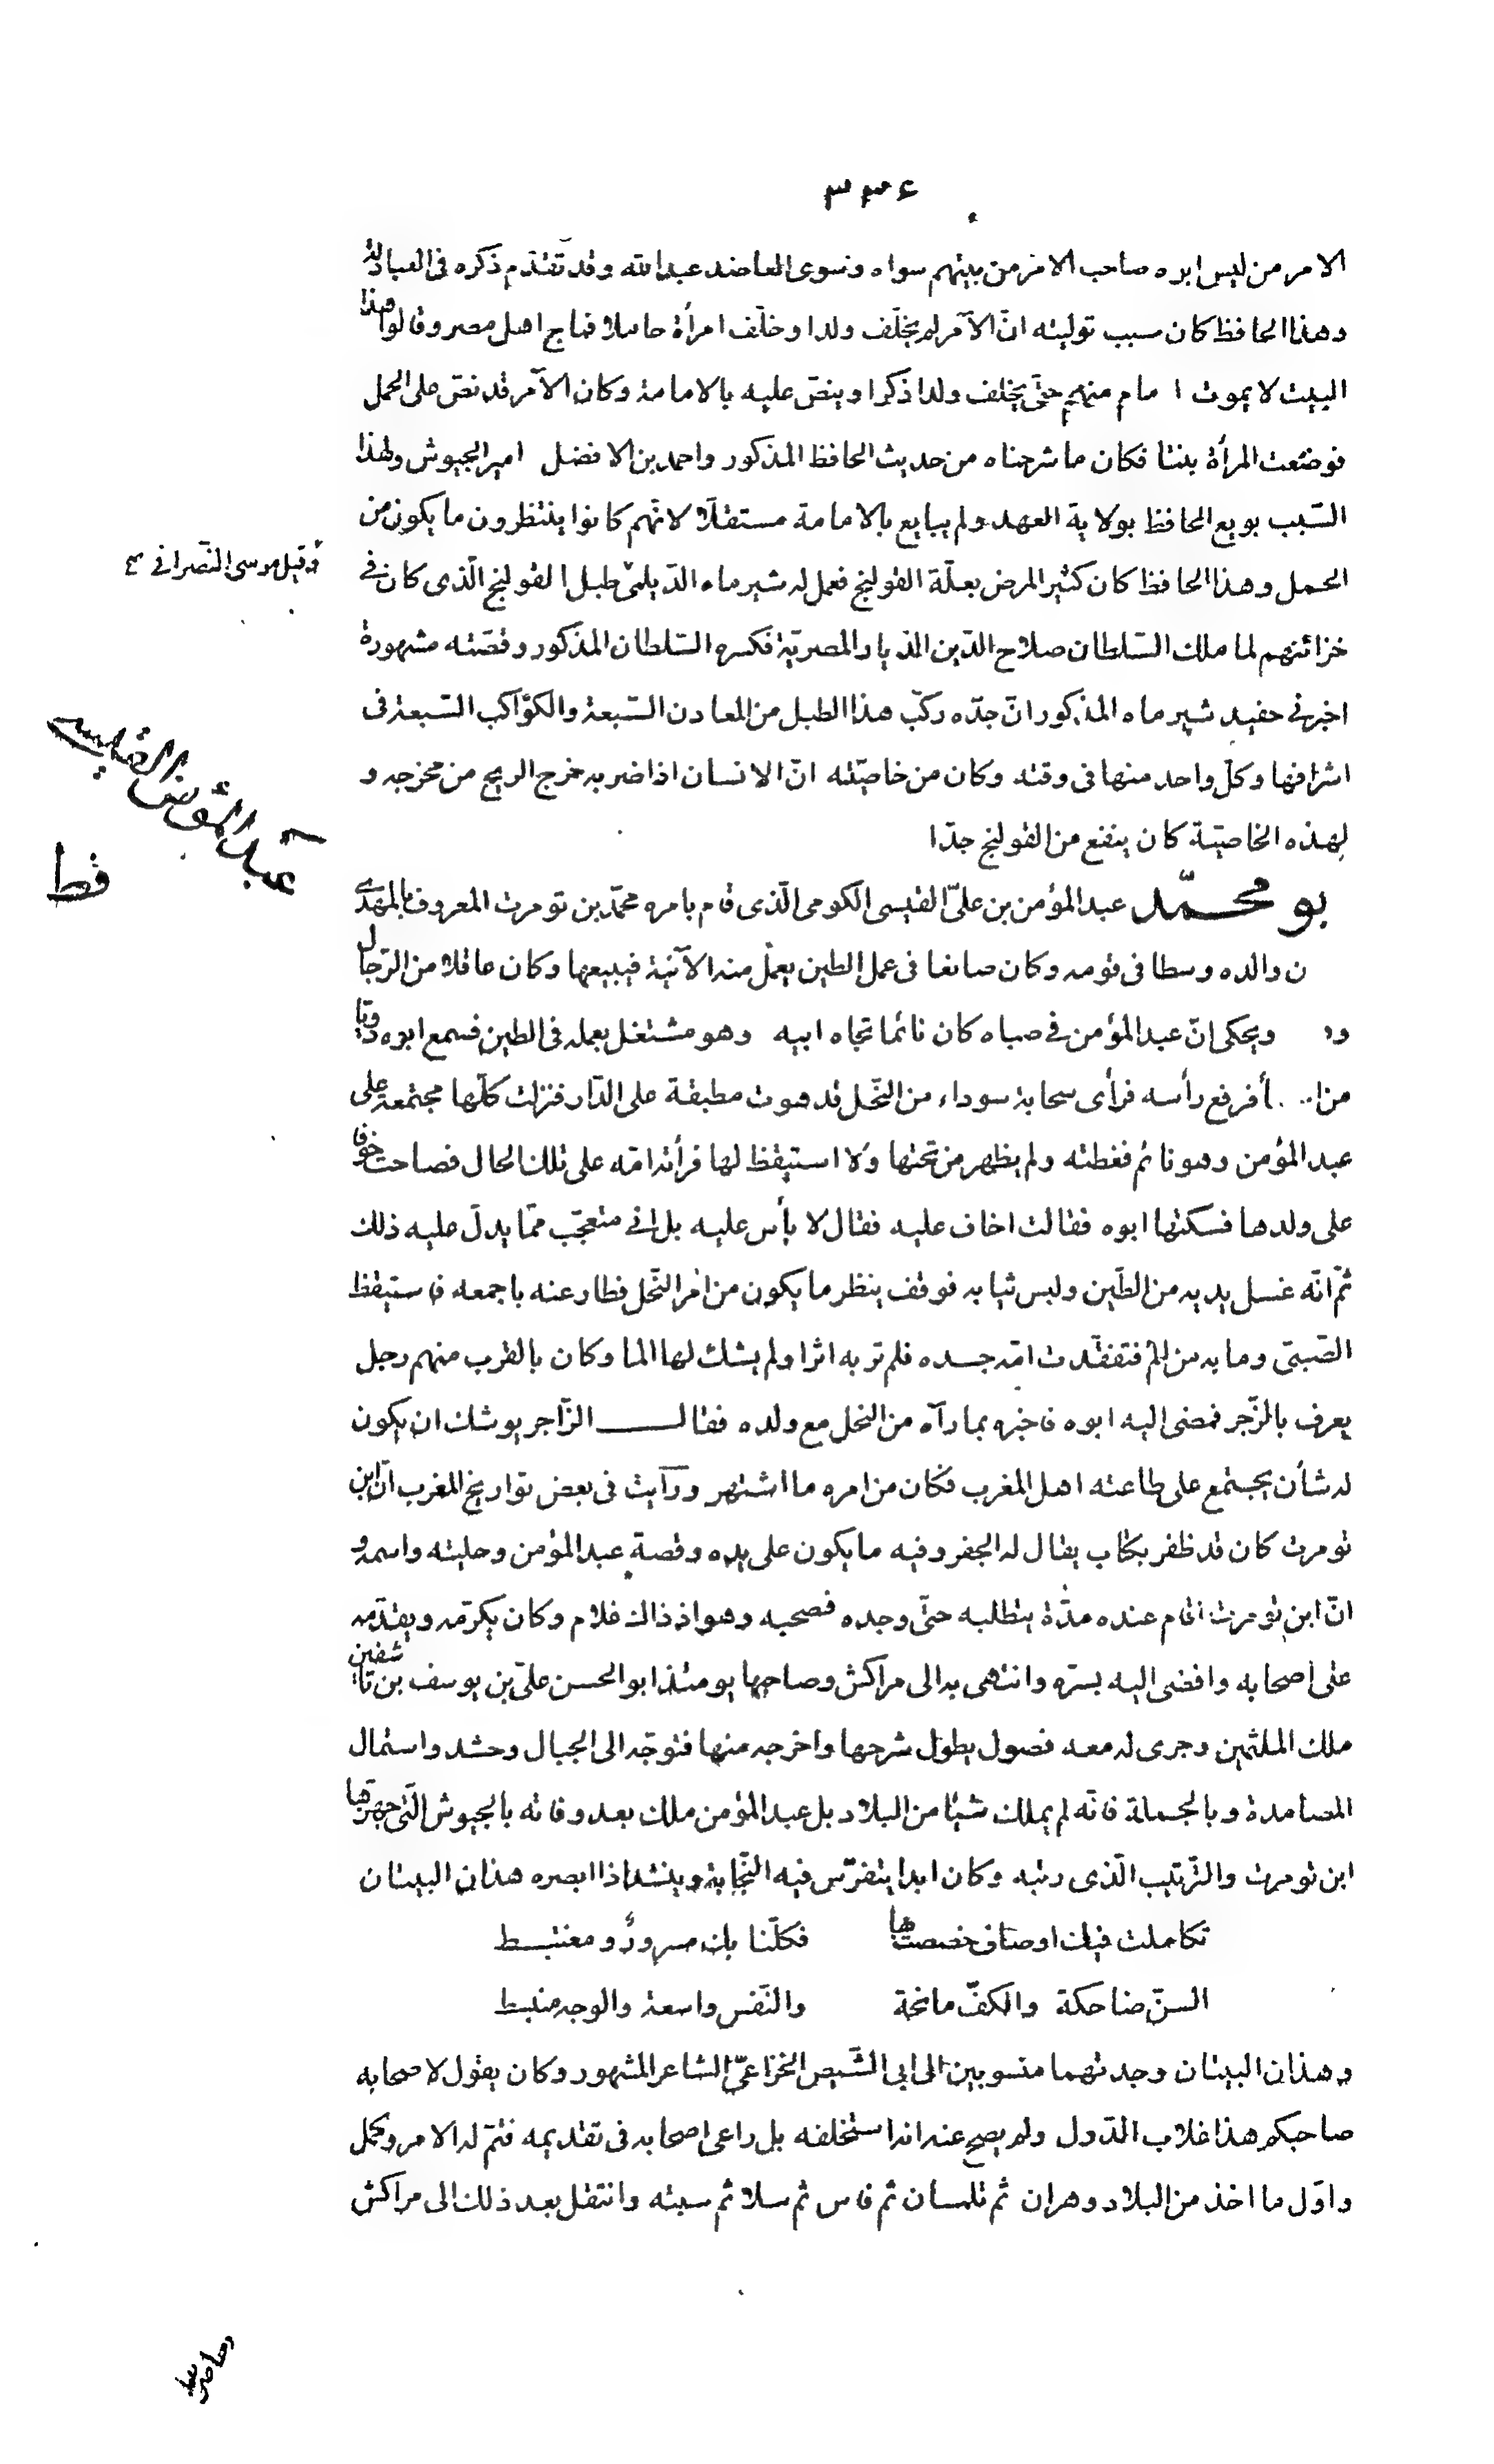 ٣٣٤
الامر من ليس ابوه صاحب الامر من بينهم سواه وسوى العاضد عبد الله وقد تقدّم ذكره فى العبادلة
وهذا الحافظ كان سبب توليته انّ الآمر لم يخلّف ولدا وخلّف امرأة حاملا فماج اهل مصر وقالوا هذا
البيت لا يموت امام منهم حتّى يخلف ولدا ذكرا وينصّ عليه بالامامة وكان الآمر قد نصّ على الحمل
فوضعت المرأة بنتا فكان ما شرحناه من حديث الحافظ المذكور واحمد بن الافضل امير الجيوش ولهذا
السّبب بويع الحافظ بولاية العهد ولم يبايع بالامامة مستقلّا لانّهم كانوا ينتظرون ما يكون من
الحمل وهذا الحافظ كان كثير المرض بعلّة القولنج فعمل له شيرماه الدّيلمىّ طبل القولنج الّذى كان فى
وقيل موسى النّصرانى
خزائنهم لما ملك السّلطان صلاح الدّين الديار المصريّة فكسره السّلطان المذكور وقصّته مشهورة
اخبرنى حفيد شيرماه المذكور انّ جدّه ركّب هذا الطبل من المعادن السّبعة والكواكب السّبعة فى
اشرافها وكلّ واحد منها فى وقته وكان من خاصّيّته انّ الانسان اذا ضربه خرج الريح من مخرجه و
لهذه الخاصيّة كان ينفع من القولنج جدّا
عبد المؤمن القيسى
قط
بو محمّد عبد المؤمن بن علىّ القيسى الكومى الّذى قام بامره محمّد بن تومرت المعروف بالمهدى
ن والده وسطا فى قومه وكان صانعا فى عمل الطين يعمل منه الآنية فيبيعها وكان عاقلا من الرّجال
و ويحكى انّ عبد المؤمن فى صباه كان نائما تجاه ابيه وهو مشتغل بعمله فى الطين فسمع ابوه دويّا
من ا فرفع رأسه فرأى سحابة سوداء من النّحل قد هوت مطبقة على الدّار فنزلت كلّها مجتمعة على
عبد المؤمن وهو نائم فغطته ولم يظهر من تحتها ولا استيقظ لها فرأته امّه على تلك الحال فصاحت خوفا
على ولدها فسكتها ابوه فقالت اخاف عليه فقال لا بأس عليه بل انى متعجّب ممّا يدلّ عليه ذلك
ثمّ انّه غسل يديه من الطّين ولبس ثيابه فوقف ينظر ما يكون من امر النّحل فطار عنه باجمعه فاستيقظ
الصّبىّ وما به من الم فتفقّدت امّه جسده فلم تر به اثرا ولم يشك لها الما وكان بالقرب منهم رجل
يعرف بالزّجر فمضى اليه ابوه فاخبره بما رآه من النحل مع ولده فقال الزّاجر يوشك ان يكون
له شأن يجتمع على طاعته اهل المغرب فكان من امره ما اشتهر ورأيت فى بعض تواريخ المغرب انّ ابن
تومرت كان قد ظفر بكتاب يقال له الجفر وفيه ما يكون على يده وقصة عبد المؤمن وحليته واسمه و
انّ ابن تومرت اقام عنده مدّة يتطلبه حتّى وجده فصحبه وهو اذ ذاك غلام وكان يكرّمه ويقدّمه
على اصحابه وافضى اليه بسرّه وانتهى به الى مراكش وصاحبها يومئذ ابو الحسن علىّ بن يوسف بن تاشفين
ملك الملثمين وجرى له معه فصول يطول شرحها واخرجه منها فتوجّه الى الجبال وحشد واستمال
المصامدة وبالجملة فانّه لم يملك شيئا من البلاد بل عبد المؤمن ملك بعد وفاته بالجيوش الّتى جهّزها
ابن تومرت والتّرتيب الّذى رتبه وكان ابدا يتفرّس فيه النّجابة وينشد اذا ابصره هذان البيتان
تكاملت فيك اوصاف خصصت بها فكلّنا بك مسرورٌ ومغتبط
السنّ ضاحكة والكفّ مانحة والنّفس واسعة والوجه منبسط
وهذان البيتان وجدتهما منسوبين الى ابى الشّيص الخزاعىّ الشاعر المشهور وكان يقول لاصحابه
صاحبكم هذا غلاب الدّول ولم يصح عنه انه استخلفه بل راعى اصحابه فى تقديمه فتمّ له الامر وكمل
واوّل ما اخذ من البلاد وهران ثم تلمسان ثم فاس ثم سلا ثم سبته وانتقل بعد ذلك الى مراكش
وحاصرها